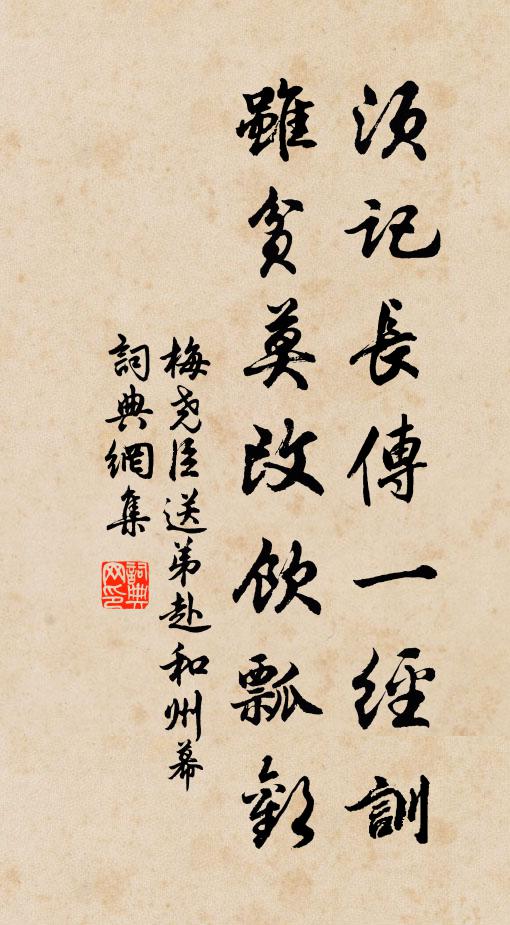 須記長傳一經訓
雖貧莫改飲瓢歡
梅堯臣送弟赴和州幕
詞典網集
詞典網印